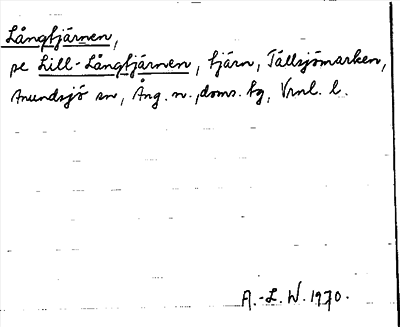 Långtjärnen,
se Lill-Långtjärnen, tjärn, Tällsjömarken,
Anundsjö sn, Ång. n., doms. tg, Vrnl. l.
A.-L. W. 1970.